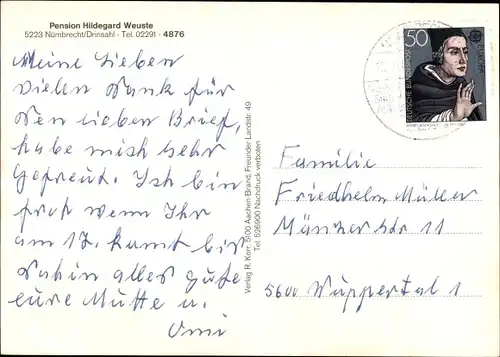 Pension Hildegard Weuste
5223 Nümbrecht/Drinsahl - Tel. 02291 - 4876
Meine Lieben
vielen Dank für
den lieben Brief,
habe mich sehr
gefreut. Ich bin
froh wenn Ihr
am 17. kommt bis
dahin alles gute
eure Mutte u.
Omi
Verlag R. Korr, 5100 Aachen-Brand, Freunder Landstr. 49
Tel. 526900 Nachdruck verboten
50
EUROPA
DEUTSCHE BUNDESPOST
Familie
Friedhelm Müller
Str 11
5600 Wuppertal 1